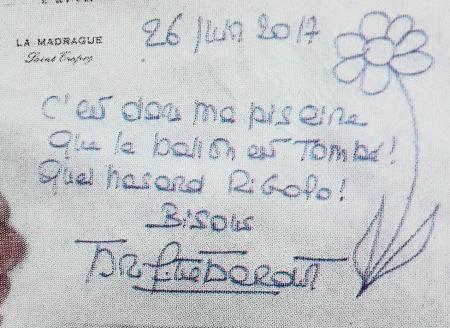 LA MADRAGUE
Saint Tropez
26 Juin 2017
C'est dans ma piscine
Que le ballon est Tombé!
Quel hasard Rigolo!
Bisous